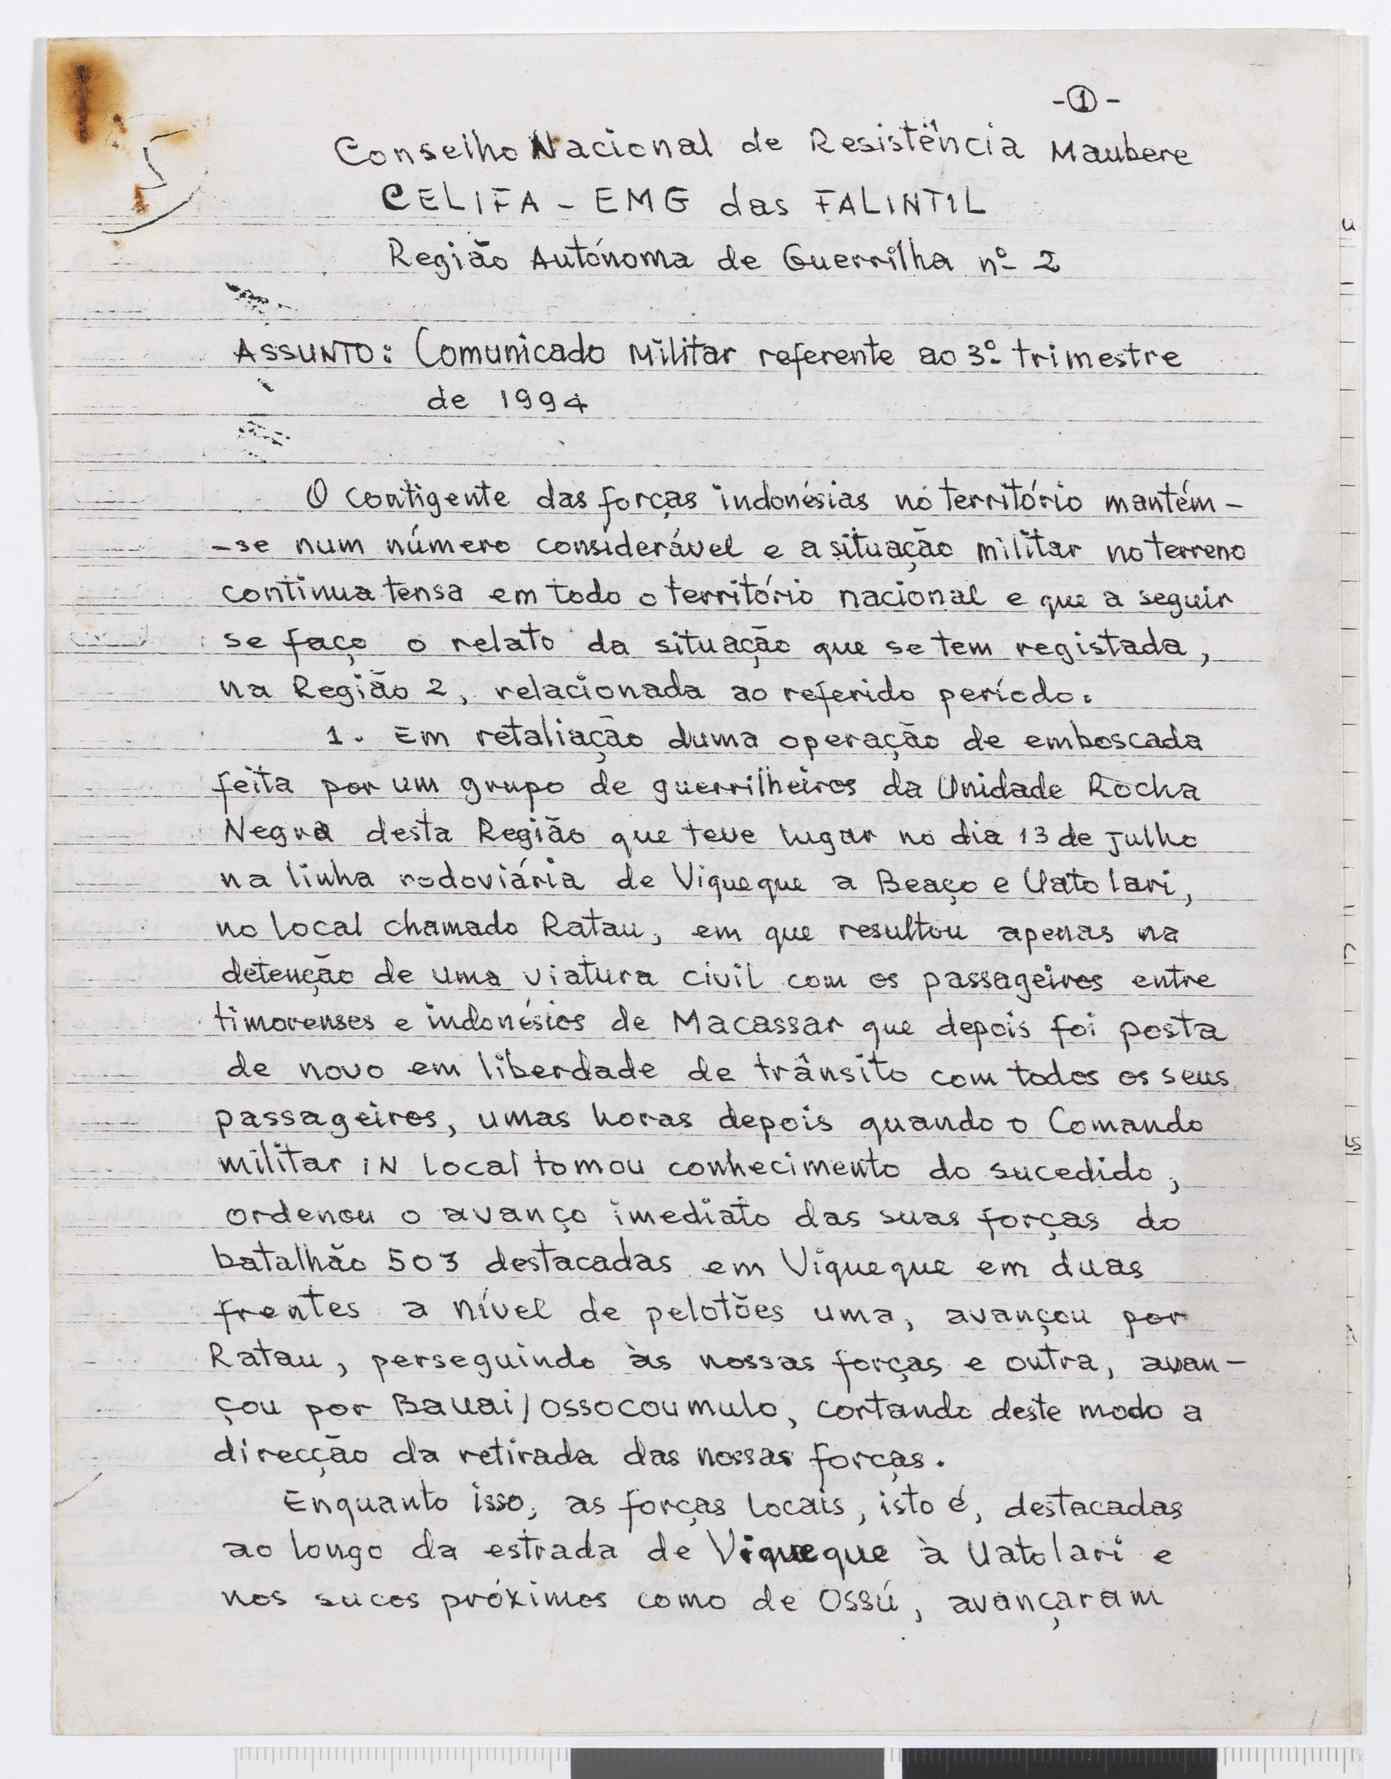 -①-
Conselho Nacional de Resistência Maubere
CELIFA - EMG das FALINTIL
Região Autónoma de Guerrilha nº 2
ASSUNTO: Comunicado Militar referente ao 3º trimestre
de 1994
O contigente das forças indonésias no território mantém-
-se num número considerável e a situação militar no terreno
continua tensa em todo o território nacional e que a seguir
se faço o relato da situação que se tem registada,
na Região 2, relacionada ao referido período:
1. Em retaliação duma operação de emboscada
feita por um grupo de guerrilheiros da Unidade Rocha
Negra desta Região que teve lugar no dia 13 de julho
na linha rodoviária de Viqueque a Beaço e Uato lari,
no local chamado Ratau, em que resultou apenas na
detenção de uma viatura civil com os passageiros entre
timorenses e indonésios de Macassar que depois foi posta
de novo em liberdade de trânsito com todos os seus
passageiros, umas horas depois quando o Comando
militar iN local tomou conhecimento do sucedido,
ordenou o avanço imediato das suas forças do
batalhão 503 destacadas em Viqueque em duas
frentes a nível de pelotões uma, avançou por
Ratau, perseguindo às nossas forças e outra, avan-
çou por Bauai/Ossocoumulo, cortando deste modo a
direcção da retirada das nossas forças.
Enquanto isso, as forças locais, isto é, destacadas
ao longo da estrada de Viqueque à Uatolari e
nos sucos próximos como de Ossú, avançaram